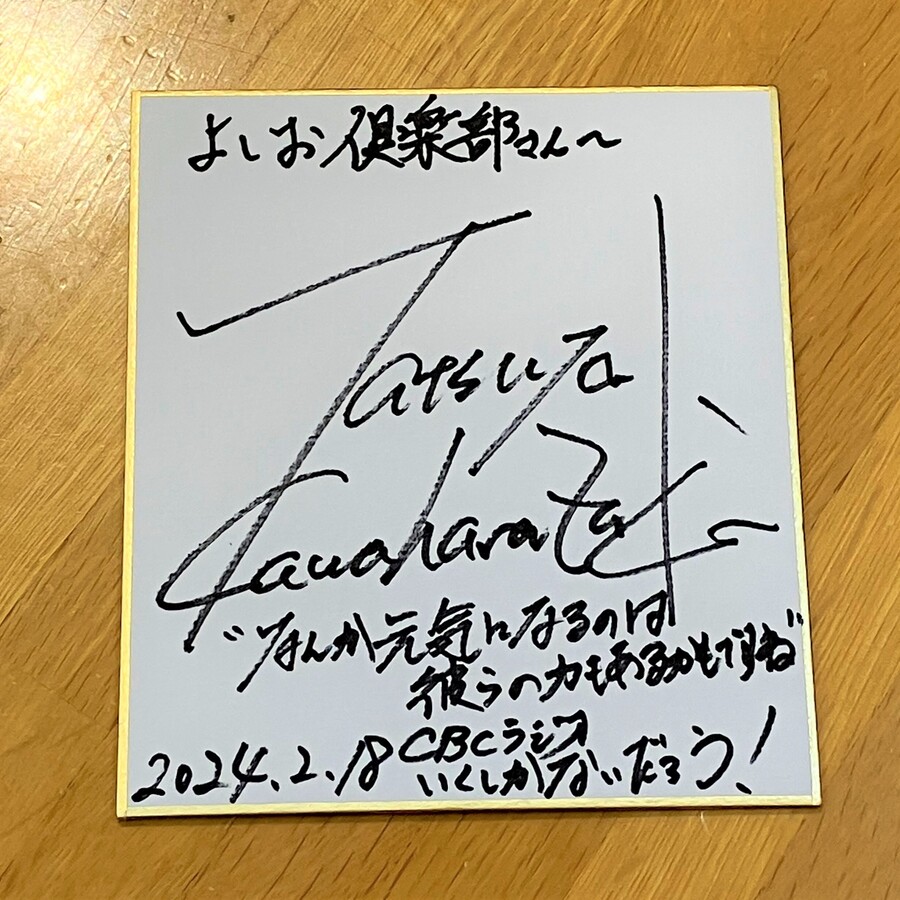 よしお倶楽部さん〜
Tatsuya
Kawaharazaki
"なんか元気になるのは
彼らの力もあるかもですね"
2024.2.18 CBCラジオ
いくしかないだろう！